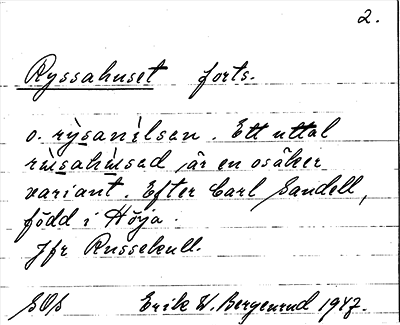 2.
Ryssahuset forts.
o. rỳsanìlsen. Ett uttal
är en osäker
variant. Efter Carl Sandell,
född i Höja.
Jfr Russekull.
Erik W. Bergenrud 1947.